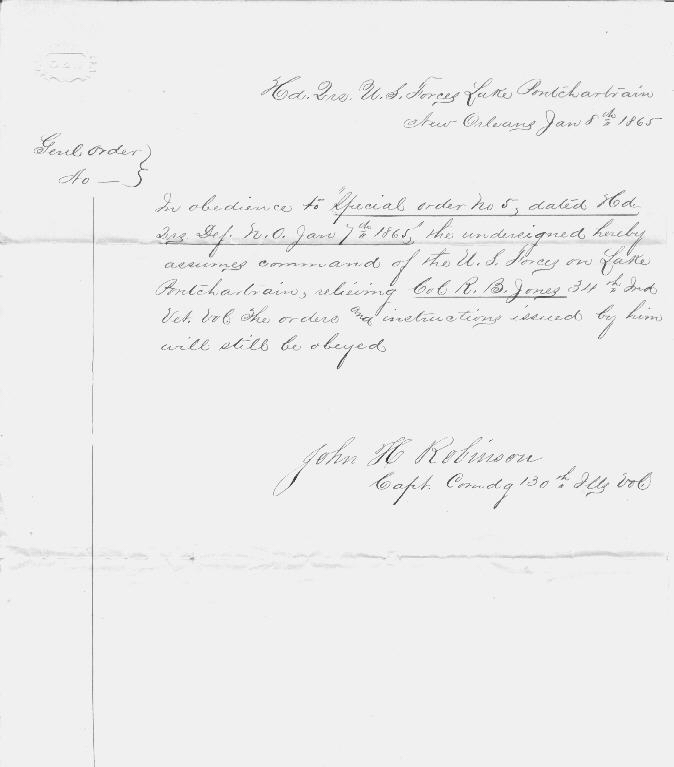 Hd. Qrs. U. S. Forces Lake Pontchartrain
New Orleans Jan 8th 1865
Genl Order }
No — }
In obedience to "Special order No 5, dated Hd
Qrs Def. N. O. Jan 7th 1865", the undersigned hereby
assumes command of the U. S. Forces on Lake
Pontchartrain, relieving Col R. B. Jones 34th Ind
Vet. Vol The orders and instructions issued by him
will still be obeyed
John H Robinson
Capt. Comdg 130th Ills Vol